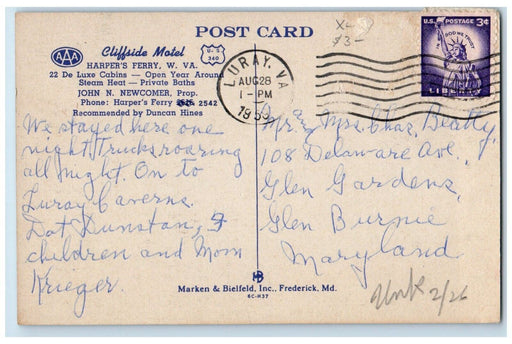 POST CARD
AAA
Cliffside Motel
U S
340
HARPER'S FERRY, W. VA.
22 De Luxe Cabins — Open Year Around
Steam Heat — Private Baths
JOHN N. NEWCOMER, Prop.
Phone: Harper's Ferry 2542
Recommended by Duncan Hines
We stayed here one
night. Trucks roaring
all night. On to
Luray Caverns.
Dot Dunstan,
children and Mom
Krueger.
LURAY, VA
AUG 28
1-PM
$3-
U.S. POSTAGE 3¢
IN GOD WE TRUST
LIBERTY
Mr. and Mrs. Chas. Beatty,
108 Delaware Ave.,
Glen Gardens,
Glen Burnie
Maryland
HB
Marken & Bielfeld, Inc., Frederick, Md.
6C-H37
2/26